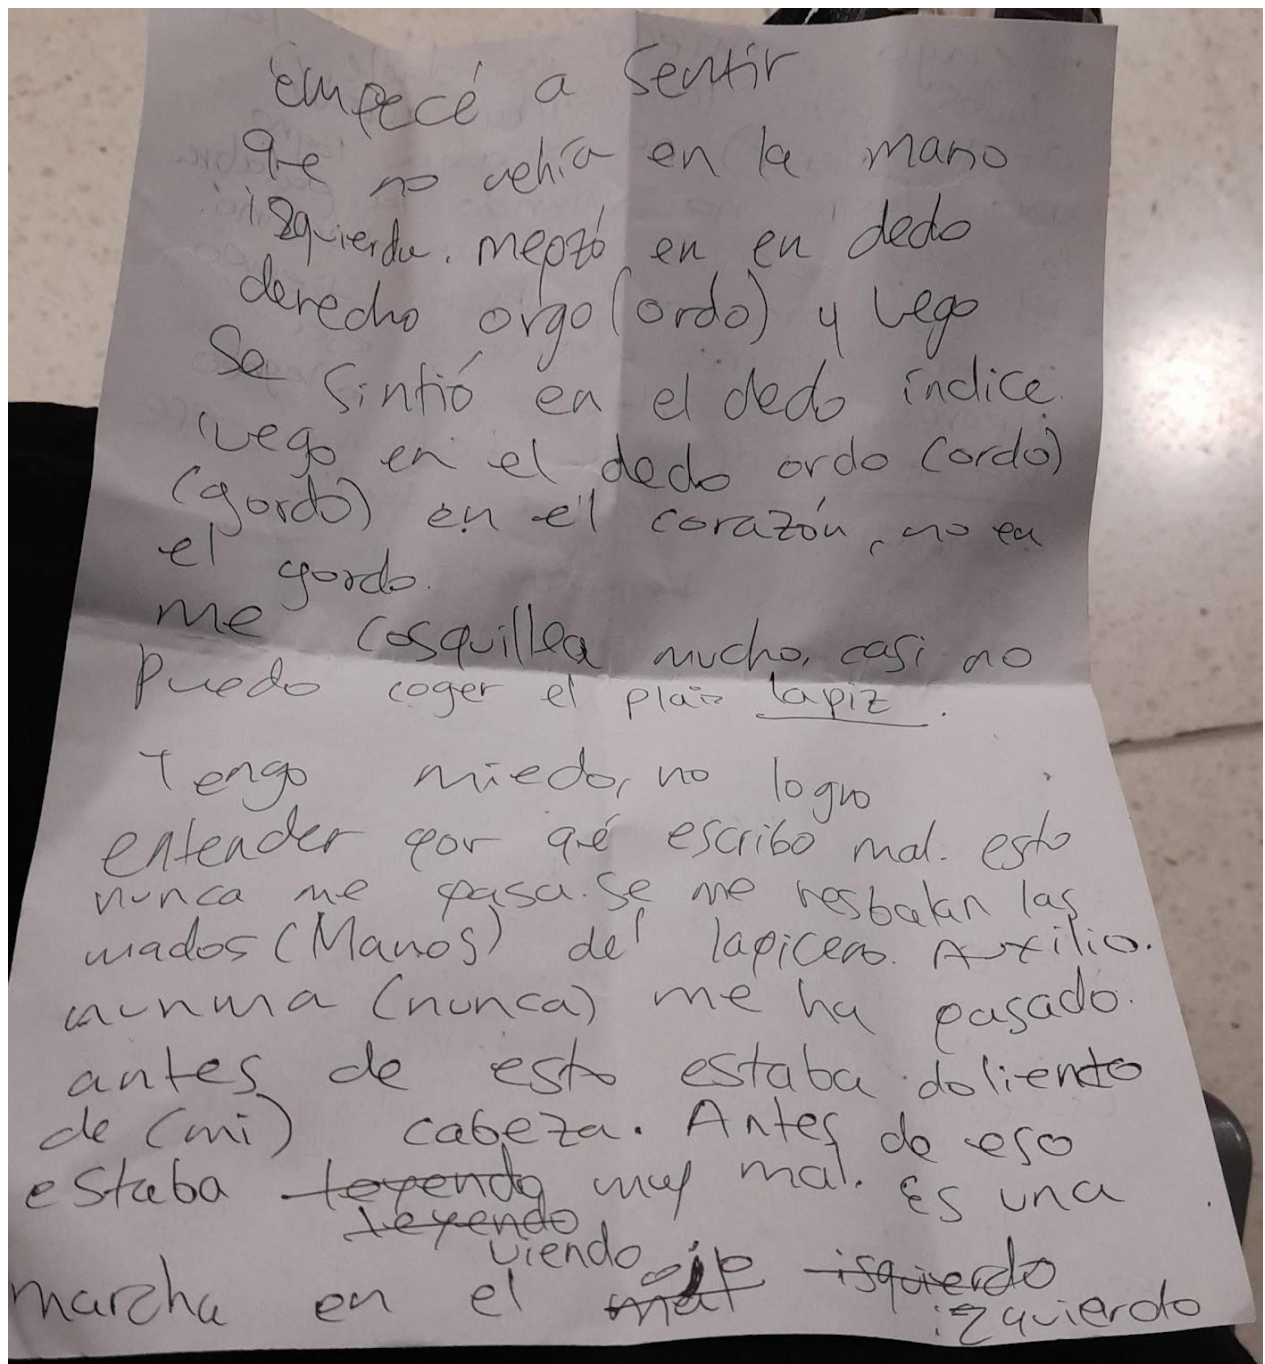 Empecé a sentir
que no vehía en la mano
izquierda. mepzó en en dedo
derecho orgo (ordo) y luego
se sintió en el dedo índice.
luego en el dedo ordo (ordo)
(gordo) en el corazón, no en
el gordo.
me cosquillea mucho, casi no
puedo coger el plaiz lapiz.
Tengo miedo, no logro
entender por qué escribo mal. esto
nunca me pasa. Se me resbalan las
mados (Manos) del lapicero. Auxilio.
nunma (nunca) me ha pasado.
antes de esto estaba doliendo
de (mi) cabeza. Antes de eso
estaba leyendo muy mal. Es una
leyendo
viendo
marcha en el ojo izquierdo
izquierdo